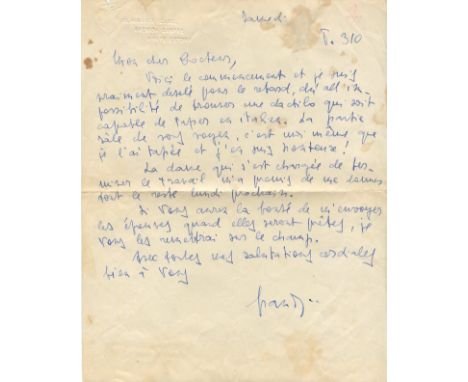 Samedi
T. 310
Mon cher Docteur,
Voici le commencement et je suis
vraiment désolé pour le retard, dû à l'im-
possibilité de trouver une dactilo qui soit
capable de taper en italien. La partie
sâle de vous voyez, c'est moi même que
je l'ai tapée et j'en suis honteux!
La dame qui s'est chargée de ter-
miner le travail m'a promis de me donner
tout le reste lundi prochain.
Si vous aurez la bonté de m'envoyer
les épreuves quand elles seront prêtes, je
vous les remettrai sur le champ.
Avec toutes mes salutations cordiales
bien à Vous